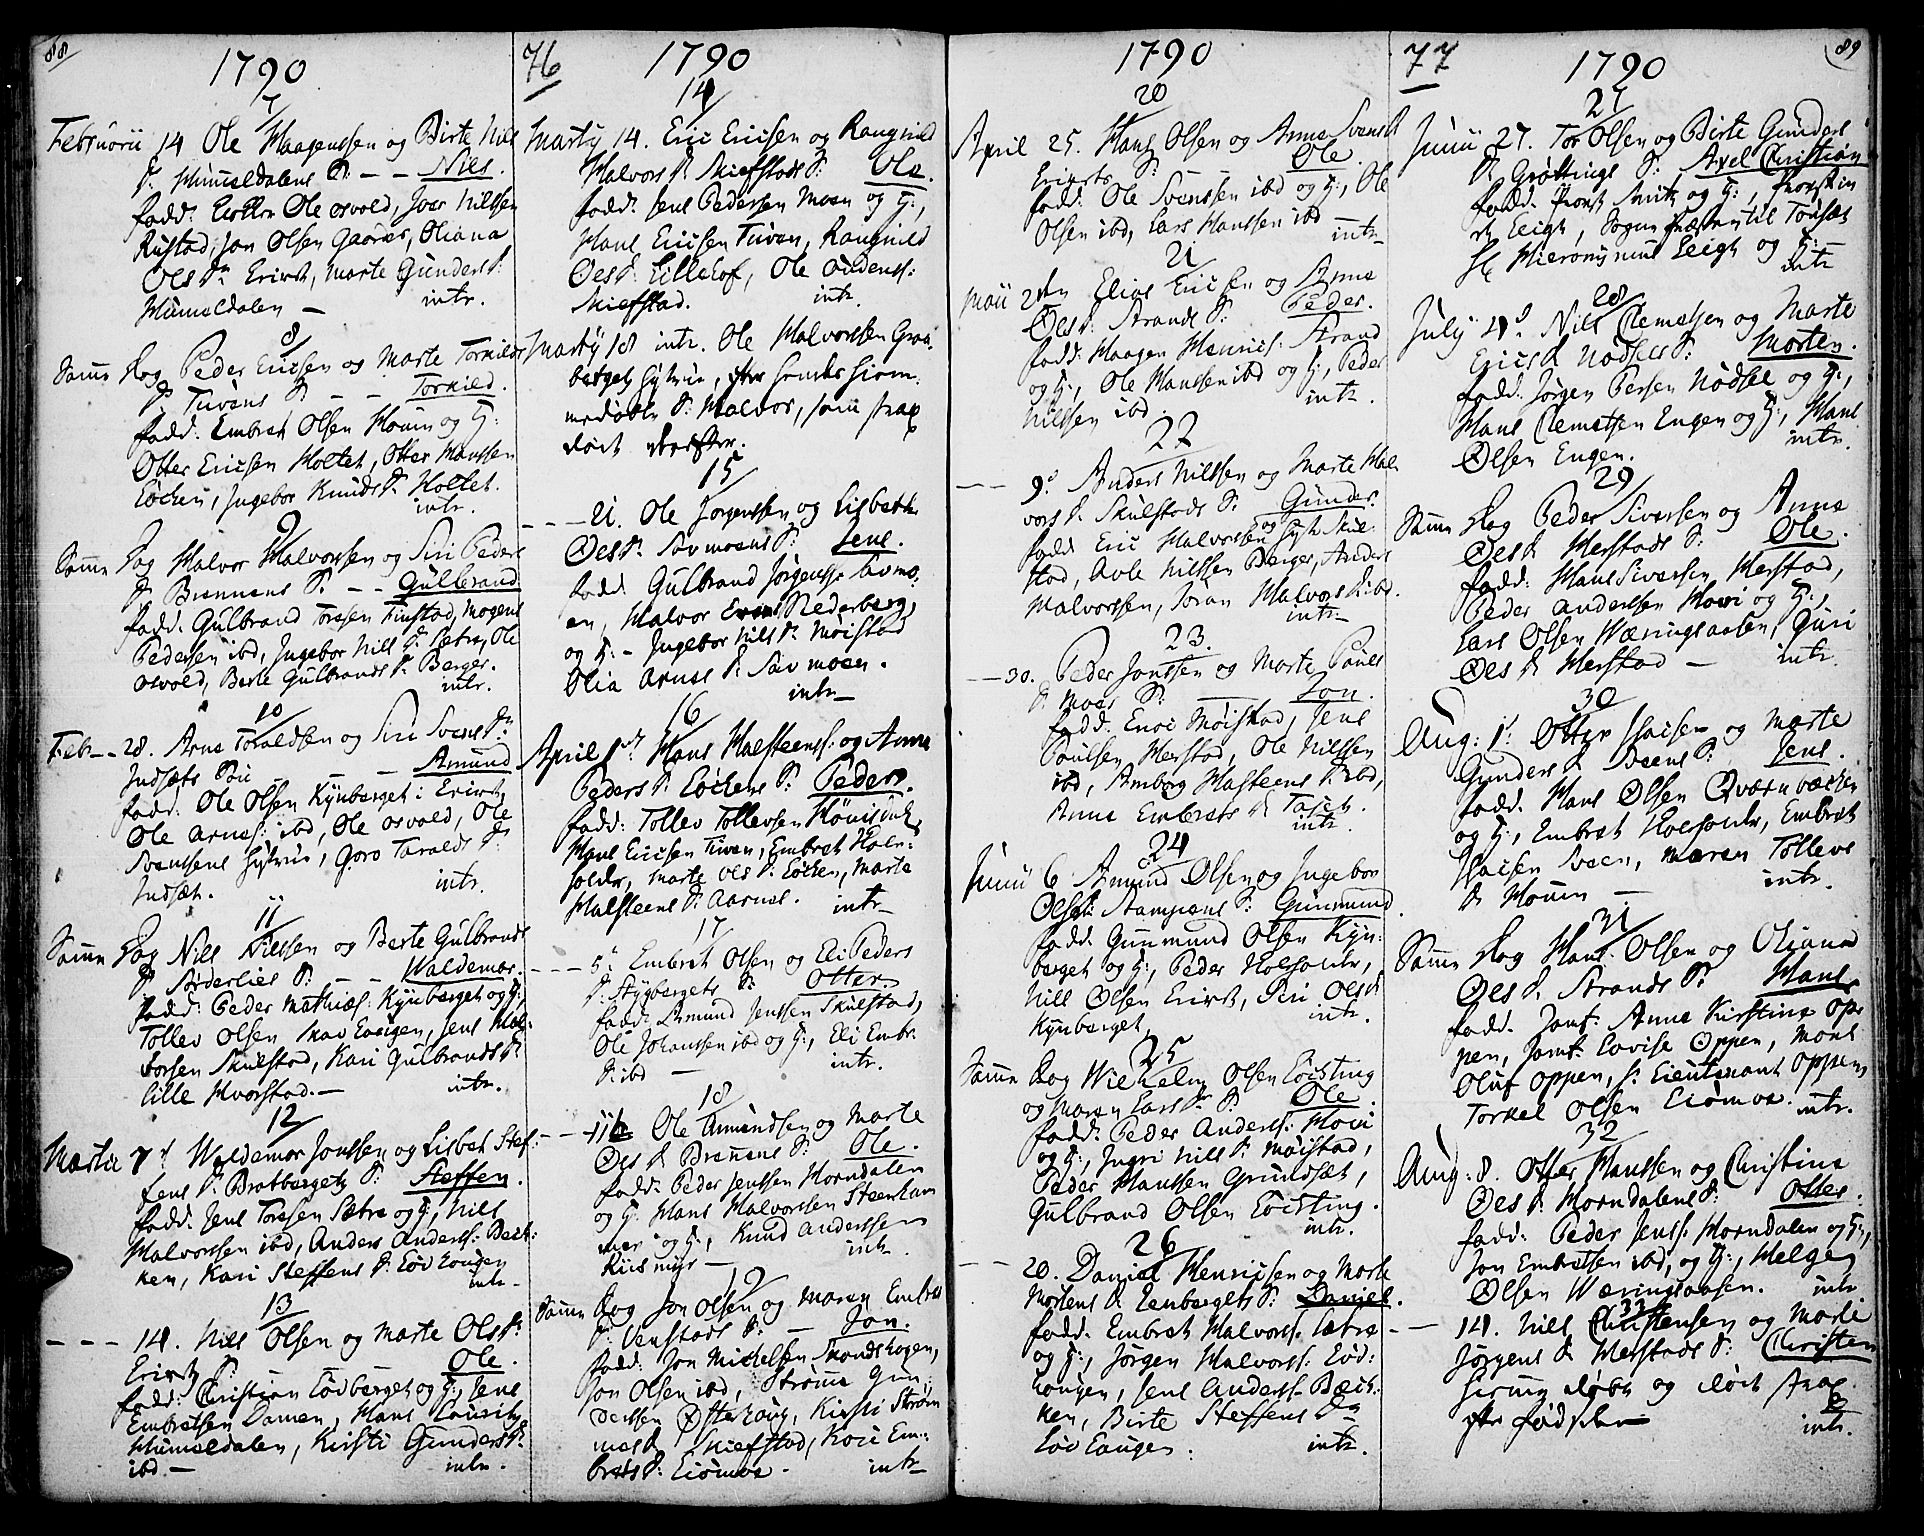 88
1790
7
Februarii 14 Ole Haagenssen og Birte Nils
D. Hummeldalens S: - - Nils.
fadd: Ole Osvold, Joer Nilssen
Rustad, Jon Olsen Oliana
Ols Dr Erirst, Marte Gunders D:
Hummeldalen - intr.
8
Samme Dag Peder Ericsen og Marte Torkilds
D. Tuvens S. - - Torkild.
fadd: Embret Olsen Houm og H:
Otter Ericsen Holtet, Otter Hanssen
Løcken, Ingebor Knuds D. Holtet.
intr.
9
Samme Dag Halvor Halvorssen og Siri Peders
D. Brennens S. - - Gulbrand
fadd. Gulbrand Toresen Finstad, Mogens
Pedersen ibd, Ingebor Nils D. Sætre, Ole
Osvold, Berte Gulbrands D. Berger.
intr.
10
Febr - 28. Arne Toraldsen og Siri Svens Dr
Indsæts - - Amund
fadd: Ole Olsen Kynberget i Erirst,
Ole Arnes: ibd, Ole Osvold, Ole
Svenssens Hustrue, Goro Taralds Dr
Indsæt. intr.
11
Samme Dag Nils Nilssen og Berte Gulbrands
D. Søderlies S: - - Waldemar.
fadd: Peder Mathias: Kynberget og H,
Tollev Olsen Evigen, Jens Hal-
vorsen Skulstad, Kari Gulbrands D.
Lille Hvorstad. - intr.
12
Martii 7d Waldemar Jonssen og Lisbet Stef-
fens D. Bratbergets S: Steffen.
fadd. Jens Toresen Sætre og H, Nils
Halvorssen ibd, Anders Anderss: Bæk-
ken, Kari Steffens D. Løvlangen
intr.
13
- - - 14. Nils Olsen og Marte Ols D.
Erirst S. Ole.
fadd: Christian Løvberget og H, Jens
Embretsen Damen, Hans Lauritz
Hummeldalen, Kirsti Gunders D.
ibd - intr.
76
1790
14
Martij 14. Eric Ericsen og Rangnild
Halvors D. Skiefstads S: Ole.
fadd: Jens Pedersen Moen og H:,
Hans Ericsen Tuven, Rangnild
Oles D. Lillehof, Ole Oudenss:
Skiefstad. intr.
Martij 18 intr. Ole Halvorssen Graa-
bergets Hustrue, efter hendes hiem-
medøbte S: Halvor, som strax
døde derefter.
15
- - - 21. Ole Jørgenssen og Lisbeth
Oles D. Savmoens S: Jens.
fadd. Gulbrand Jørgenss. Savmo-
en, Halvor Evens Nederberg,
og H: - Ingebor Nils D. Møistad
Olia Arnes D. Savmoen.
intr -
16
April 1d Hans Halsteenss: og Anne
Peders D. Løckens S. Peder.
fadd: Tollev Tollevsen
Hans Ericsen Tuven, Embret Hols-
Marte Ols D. Løcken, Marte
Halsteens D. Aarnes. intr -
17
- - - 5t Embret Olsen og Eli Peders
D. Stybergets S: Otter.
fadd. Amund Jenssen Skulstad,
Ole Johanssen ibd og H:, Eli Embr:
D. ibd - intr.
18
- - - 11t Ole Amundsen og Marte
Oles D. Brennens S: Ole.
fadd: Peder Jenssen Horndalen
og H: Hans Halvorssen Steenham
mer og H:, Knud Anderssen
Riismyr - intr.
19
Samme Dag Jon Olsen og Maren Embrets
D. Venstads S: - Jon.
fadd: Jon Mickelsen Skandshogen,
Jon Olsen ibd, Strøme Gun-
derssen Østehoug, Kirsti Strøm
Skiefstad, Kari Em-
brets D: Eiømoe. intr -
1790
20
April 25. Hans Olsen og Anne Svends D.
Erirsts S: Ole.
fadd: Ole Svenssen ibd og H:, Ole
Olsen ibd, Lars Hanssen ibd intr -
21
Maii 2den Elias Ericsen og Anne
Oles D. Strands S: Peder.
fadd: Haagen Henrics: Strand
og H:, Ole Hanssen ibd og H:, Peder
Nilssen ibd. intr.
22
- - 9d Anders Nilssen og Marte Hal
vors D. Skulstads S: Gunder.
fadd Eric Halvorssen og Hst. Skul
stad, Avle Nilssen Berger, Anders
Halvorssen, Joran Halvors D. ibd.
intr -
23.
- - 30. Peder Jonssen og Marte Pouels
D. Moes S: - Jon.
fadd. Enoi Møistad, Jens
Poulsen Herstad, Ole Nilssen
ibd, Amborg Halsteens D. ibd,
Anne Embrets D.
intr.
24
Junii 6 Amund Olsen og Ingebor
Ols D: Stampens S: Gunmund.
fadd. Gunmund Olsen Kyn-
berget og H:, Peder
Nils Olsen Erirst, Siri Ols D.
Kynberget, intr.
25
Samme Dag Wilhelm Olsen Løisting
og Maren Lars D. S: Ole.
fadd: Peder Anderss: Hovi
og H:, Ingri Nils D. Møistad,
Peder Hanssen Grundsæt,
Gulbrand Olsen Løisting.
intr.
26
- - 20. Daniel Henricsen og Marte
Mortens D. Lenbergets S: Daniel.
fadd. Embret Halvorss: Sætre
og H:, Jørgen Halvorss: Løv-
langen, Jens Anderss: Bæck-
ken, Birte Steffens D.
Løvlangen. intr.
77
1790
89
27
Junii 27. Tor Olsen og Birte Gunders
D. Grøttings S: Axel Christian
fadd. Provst Smith og H:, Provstin
de Leigh, Sogne Præsten til Tønset
Hr Hieronymus Leigh og H:
intr
28
July 4d Nils Clemetsen og Marte
Erics D Nødsets S: Morten.
fadd. Jørgen Persen Nødset og H:,
Hans Clemetsen Engen og H:, Hans
Olsen Engen. intr.
29
Samme Dag Peder Sivers­sen og Anne
Oles D. Herstads S: Ole.
fadd: Hans Siverssen Herstad,
Peder Anderssen Hovi og H:,
Lars Olsen Wæringsaasen, Guri
Oles D Herstad - intr.
30
Aug: 1t Otter Isaisen og Marte
Gunders D Sveens S: Jens.
fadd. Hans Olsen Qværnbæcken
og H:, Embret Embret
Isaisen Sveen, Maren Tollevs
D Houm - intr.
31
Samme Dag Hans Olsen og Oliana
Oles D. Strands S: Hans.
fadd. Jomf: Anne Kirstine Op-
pen, Jomf: Lovise Oppen, Mons
Oluf Oppen, S: Lieutenant Oppen,
Torkel Olsen Eiømoe. intr.
32
Aug: 8. Otter Hanssen og Christine
Oles D. Horndalens S: Otter.
fadd: Peder Jenss: Horndalen og H:,
Jon Embretsen ibd, og H:, Helge
Olsen Wæringsaasen. intr
33
- - 14. Nils Christensen og Marte
Jørgens D Herstads S: Christen
hiemme døbt og død strax
efter fødselen -
intr.